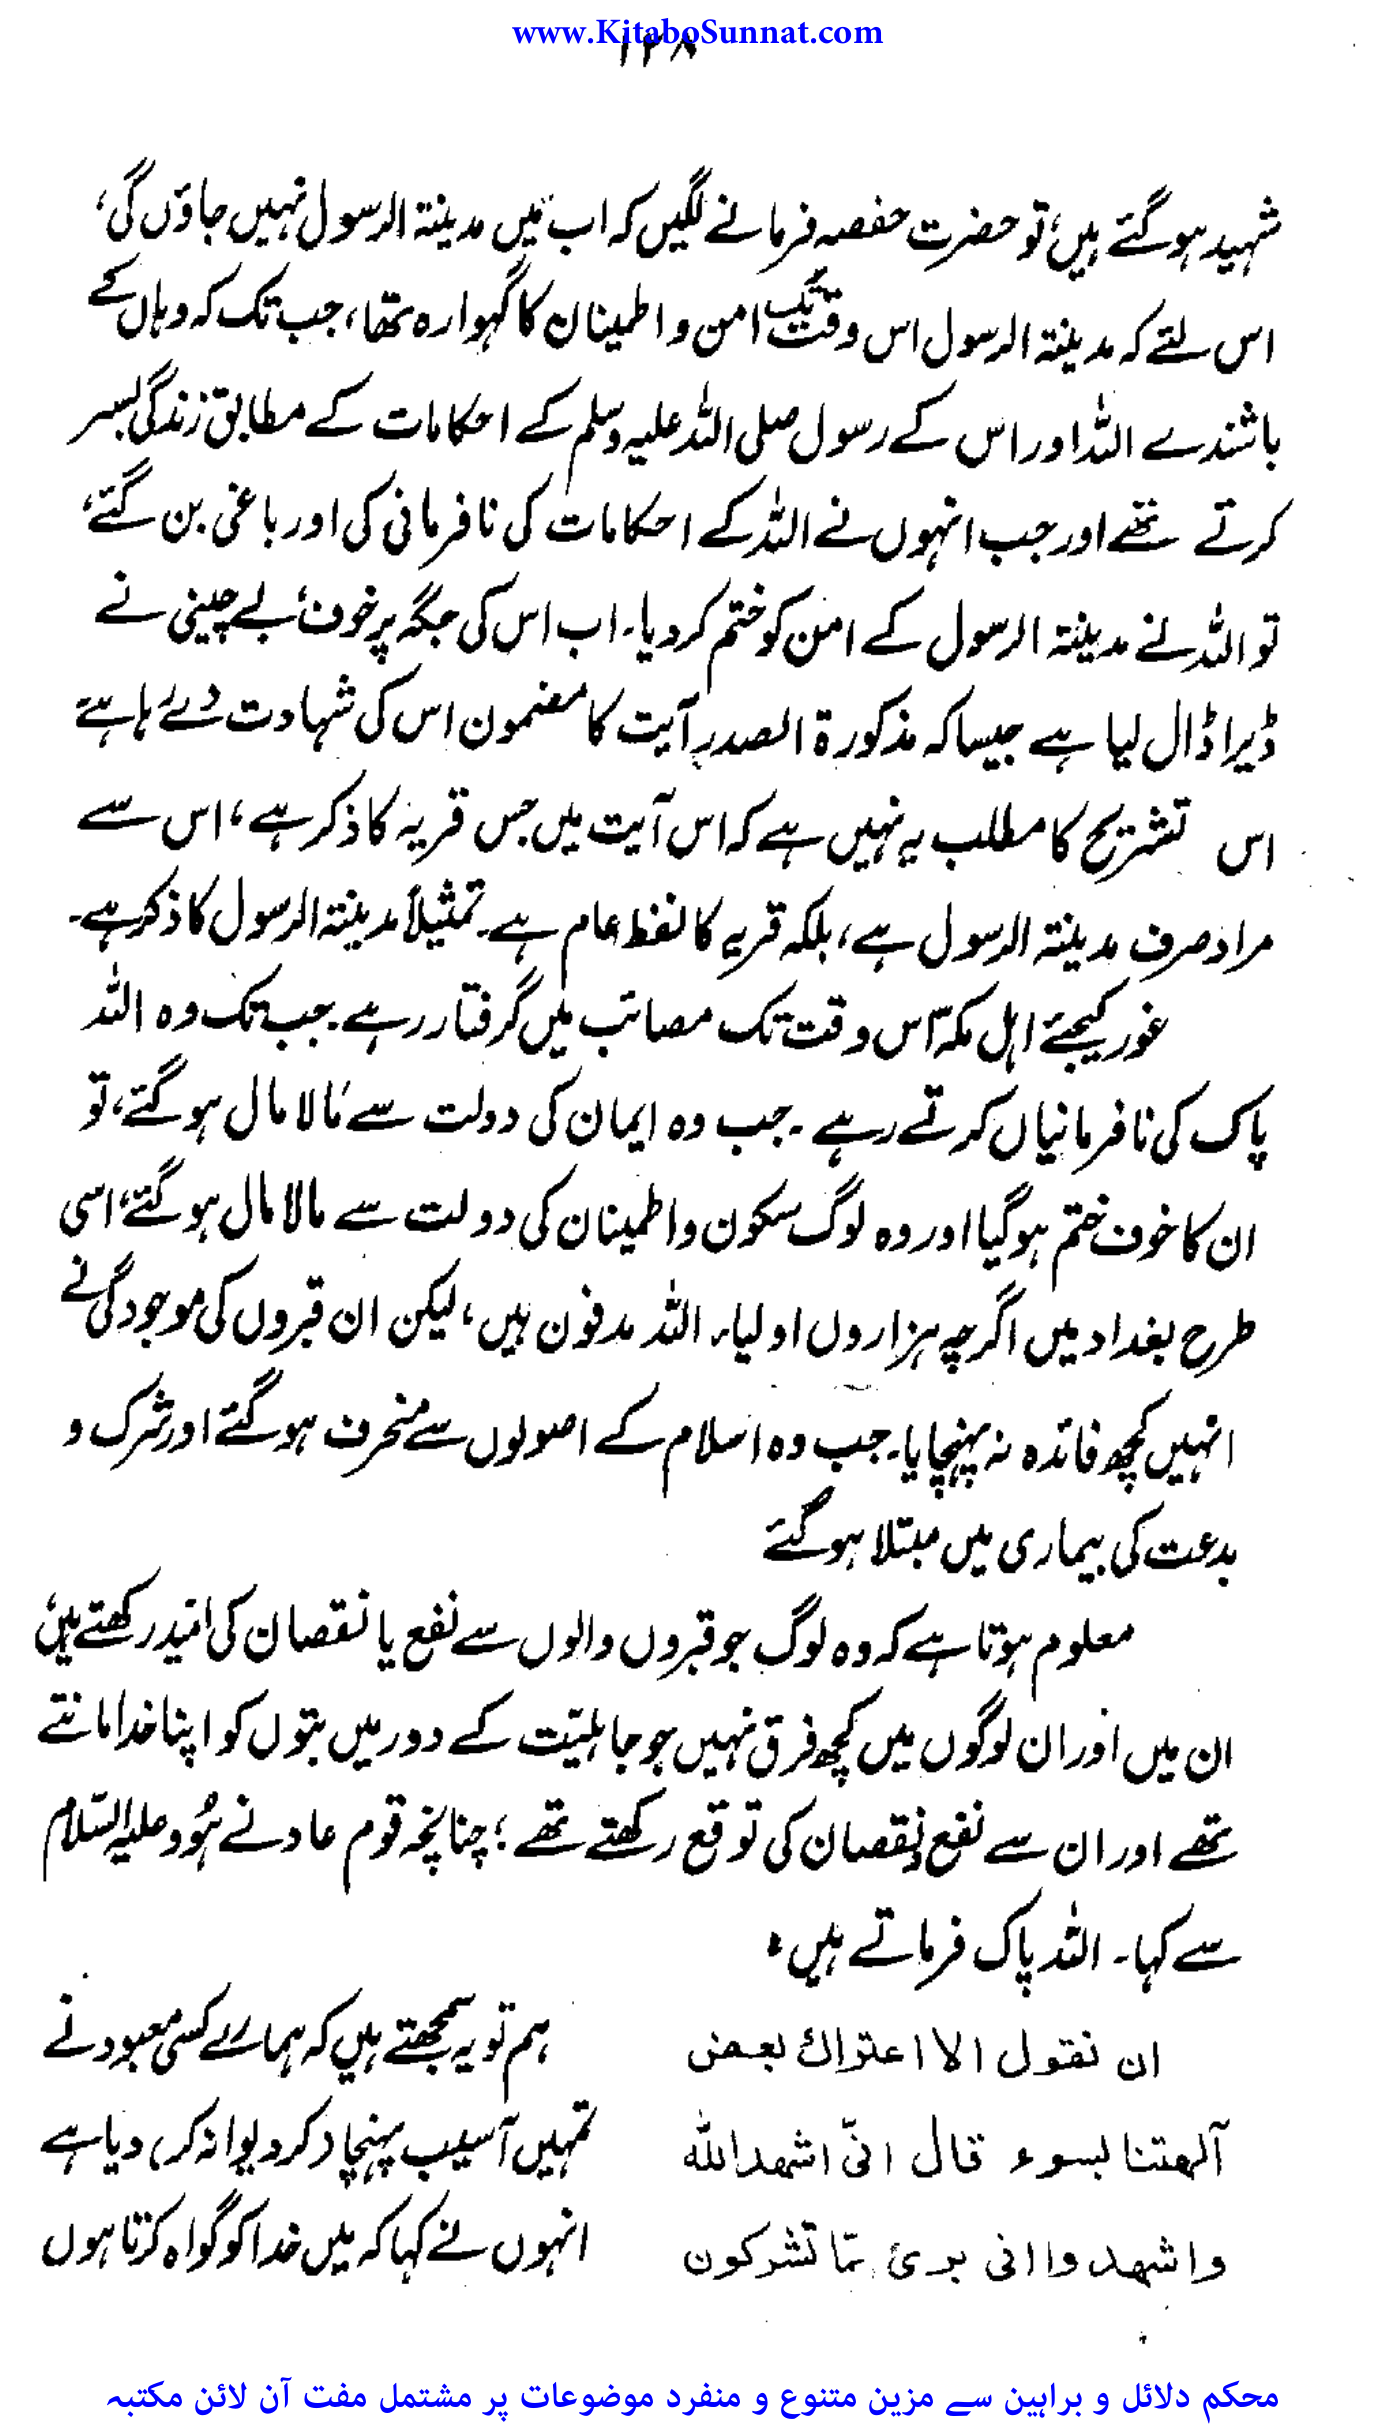 www.KitaboSunnat.com
۱۲۸
شہید ہوگئے ہیں، تو حضرت حفصہ فرمانے لگیں کہ اب میں مدینۃ الرسول نہیں جاؤں گی،
اس لئے کہ مدینۃ الرسول اس وقت تک امن و اطمینان کا گہوارہ تھا، جب تک کہ وہاں کے
باشندے اللہ اور اس کے رسول صلی اللہ علیہ وسلم کے احکامات کے مطابق زندگی بسر
کرتے تھے اور جب انہوں نے اللہ کے احکامات کی نافرمانی کی اور باغی بن گئے،
تو اللہ نے مدینۃ الرسول کے امن کو ختم کردیا۔ اب اس کی جگہ پر خوف، بے چینی نے
ڈیرا ڈال لیا ہے جیسا کہ مذکورۃ الصدر آیت کا مضمون اس کی شہادت دے رہا ہے
اس تشریح کا مطلب یہ نہیں ہے کہ اس آیت میں جس قریہ کا ذکر ہے، اس سے
مراد صرف مدینۃ الرسول ہے، بلکہ قریہ کا لفظ عام ہے۔ تمثیلاً مدینۃ الرسول کا ذکر ہے۔
غور کیجئے اہل مکہ اس وقت تک مصائب میں گرفتار رہے۔ جب تک وہ اللہ
پاک کی نافرمانیاں کرتے رہے۔ جب وہ ایمان کی دولت سے مالا مال ہوگئے، تو
ان کا خوف ختم ہوگیا اور وہ لوگ سکون و اطمینان کی دولت سے مالا مال ہوگئے، اسی
طرح بغداد میں اگرچہ ہزاروں اولیاء اللہ مدفون ہیں، لیکن ان قبروں کی موجودگی نے
انہیں کچھ فائدہ نہ پہنچایا۔ جب وہ اسلام کے اصولوں سے منحرف ہوگئے اور شرک و
بدعت کی بیماری میں مبتلا ہوگئے
معلوم ہوتا ہے کہ وہ لوگ جو قبروں والوں سے نفع یا نقصان کی امید رکھتے ہیں،
ان میں اور ان لوگوں میں کچھ فرق نہیں جو جاہلیّت کے دور میں بتوں کو اپنا خدا مانتے
تھے اور ان سے نفع و نقصان کی توقع رکھتے تھے؛ چنانچہ قوم عاد نے ہُود علیہ السّلام
سے کہا۔ اللہ پاک فرماتے ہیں،
ان نقول الا اعتراك بعض
آلهتنا بسوء قال انّی اشهد الله
واشهدوا انی بریٔ ممّا تشرکون
ہم تو یہ سمجھتے ہیں کہ ہمارے کسی معبود نے
تمہیں آسیب پہنچا (کر دیوانہ کر) دیا ہے
انہوں نے کہا کہ میں خدا کو گواہ کرتا ہوں
محکم دلائل و براہین سے مزین متنوع و منفرد موضوعات پر مشتمل مفت آن لائن مکتبہ